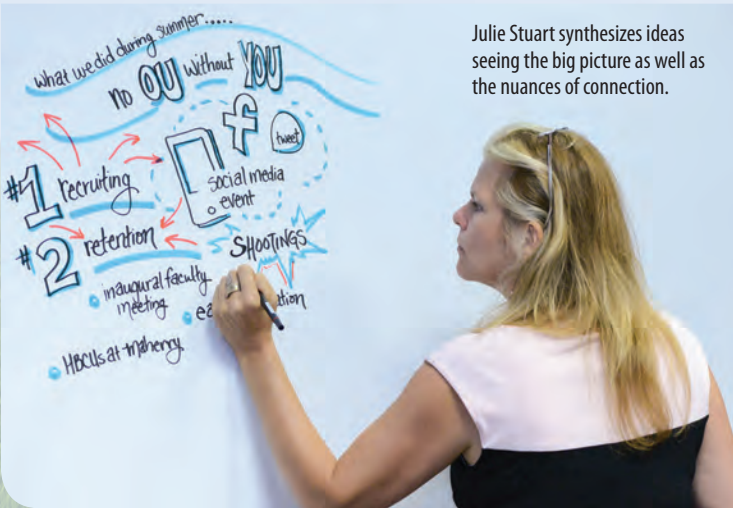 Julie Stuart synthesizes ideas
seeing the big picture as well as
the nuances of connection.
what we did during summer.....
no OU without YOU
f
tweet
#1 recruiting
social media
event
#2 retention
SHOOTINGS
inaugural faculty
meeting
HBCUs at maherry